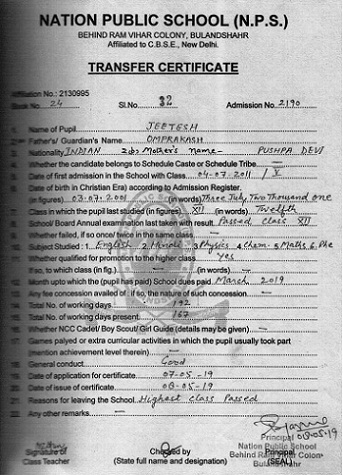 NATION PUBLIC SCHOOL (N.P.S.)
BEHIND RAM VIHAR COLONY, BULANDSHAHR
Affiliated to C.B.S.E., New Delhi.
TRANSFER CERTIFICATE
Affiliation No.: 2130995
Book No. 24 Sl.No. 32 Admission No. 2190
1. Name of Pupil JEETESH
2. Father's/ Guardian's Name OMPRAKASH
3. Nationality INDIAN Mother's Name- PUSHPA DEVI
4. Whether the candidate belongs to Schedule Caste or Schedule Tribe —
5. Date of first admission in the School with Class 04-07-2011 / V
6. Date of birth in Christian Era) according to Admission Register.
(in figures) 03-07-2001 (in words) Three July, Two Thousand One
7. Class in which the pupil last studied (in figures) XII (in words) Twelfth
8. School/ Board Annual examination last taken with result Passed Class XII
9. Whether failed, if so once/ twice in the same class —
10. Subject Studied : 1. English 2. Hindi 3 Physics 4 Chem 5 Maths 6. Phe
11. Whether qualified for promotion to the higher class Yes
If so, to which class (in fig.) — (in words) —
12. Month upto which the (pupil has paid) School dues paid March 2019
13. Any fee concession availed of : If so, the nature of such concession —
14. Total No. of working days 192
15. Total No. of working days present 167
16. Whether NCC Cadet/ Boy Scout/ Girl Guide (details may be given) —
17. Games palyed or extra curricular activities in which the pupil usually took part
(mention achievement level therein) —
18. General conduct Good
19. Date of application for certificate 07-05-19
20. Date of issue of certificate 08-05-19
21. Reasons for leaving the School Highest class Passed
22. Any other remarks —
Principal 08-05-19
Nation Public School
Behind Ram Vihar Colony
Bulandshahr
Signature of Class Teacher
Checked by
(State full name and designation)
Principal
(SEAL)